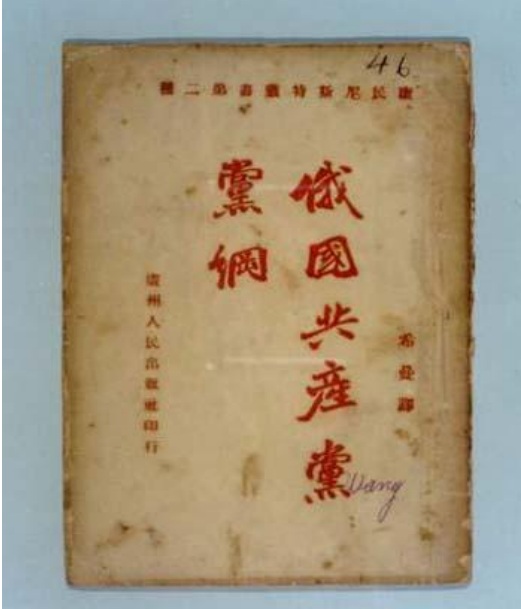 46
康民尼斯特叢書第二種
俄國共產黨
黨綱
希曼譯
Wang
廣州人民出版社印行